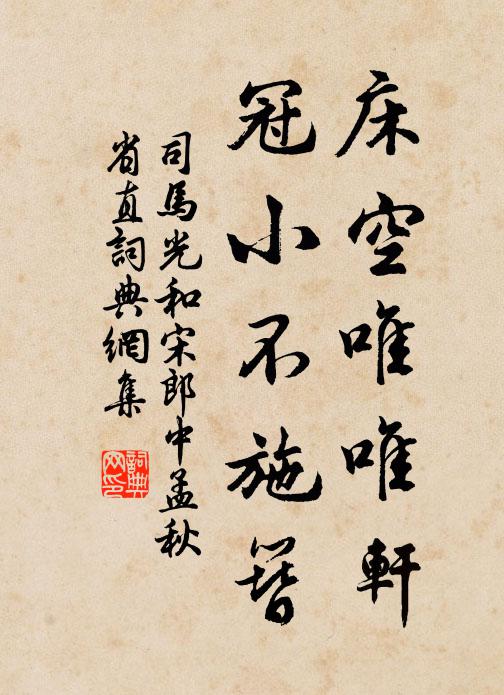 床空唯唯軒
冠小不施簪
司馬光和宋郎中孟秋
省直詞典網集
詞典網印